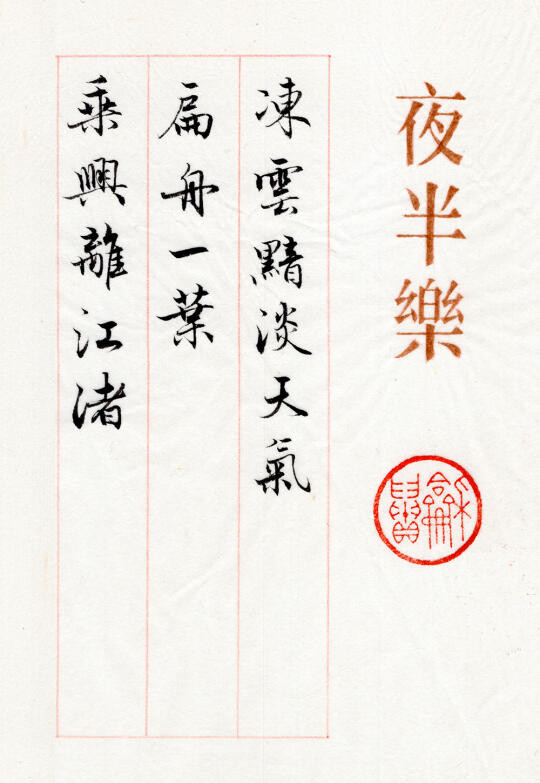 夜半樂
凍雲黯淡天氣
扁舟一葉
乘興離江渚